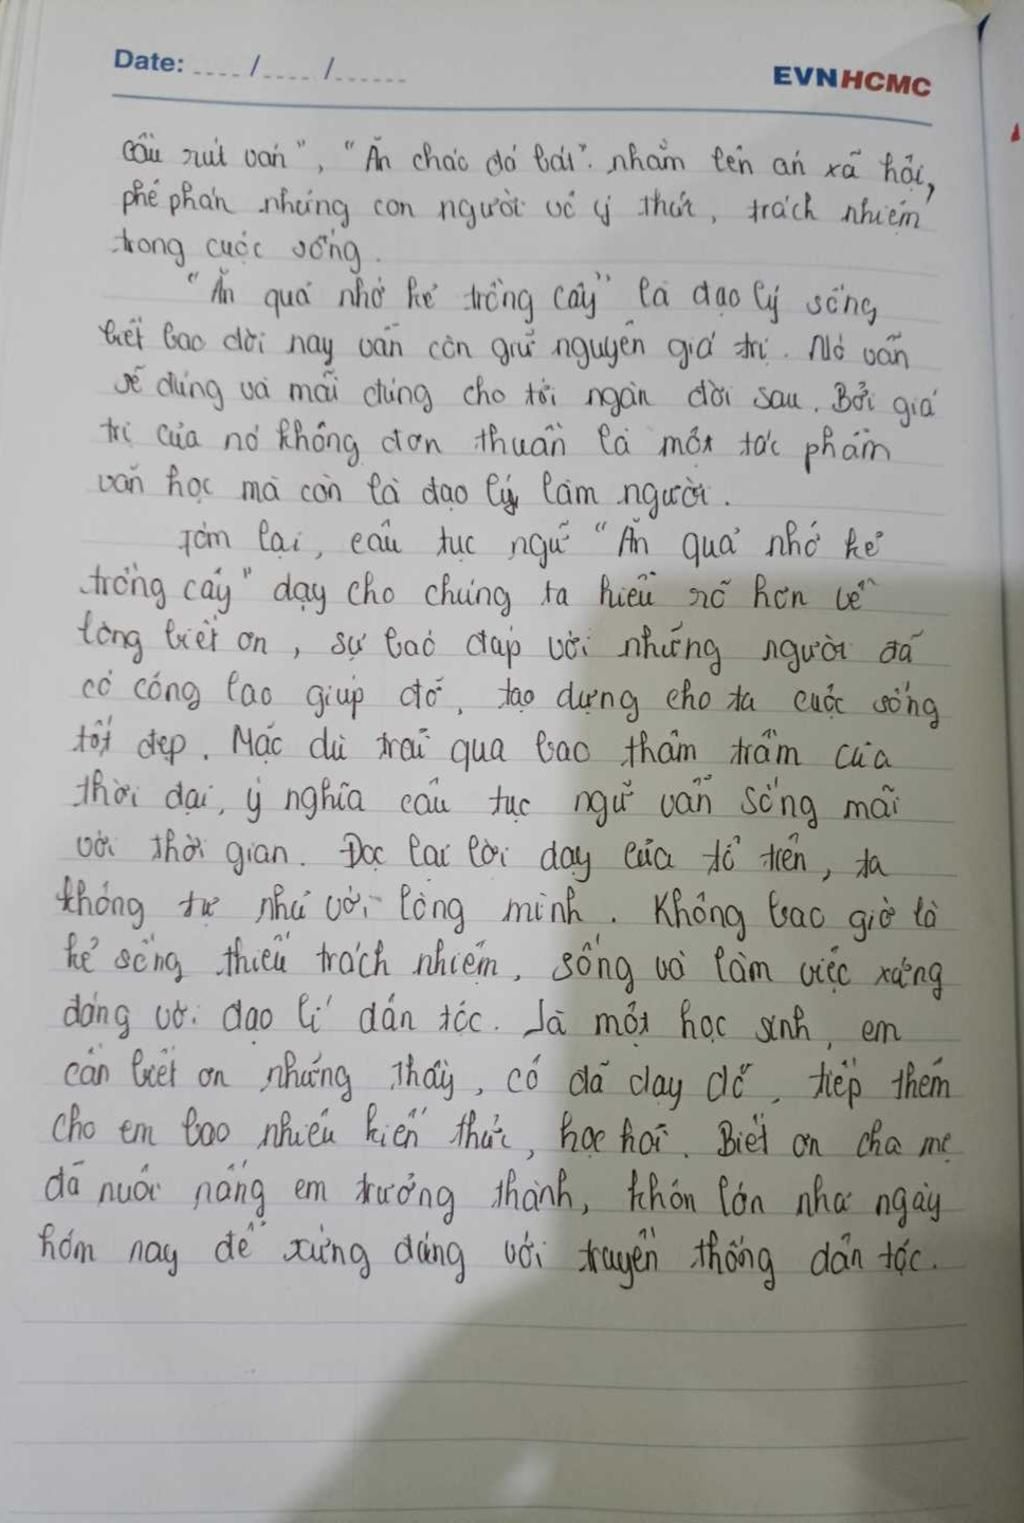 Date: ..... / ..... / .......
EVNHCMC
cầu rút ván", "Ăn cháo đá bát". nhằm lên án xã hội,
phê phán những con người vô ý thức, trách nhiệm
trong cuộc sống.
"Ăn quả nhớ kẻ trồng cây" là đạo lý sống
biết bao đời nay vẫn còn giữ nguyên giá trị. Nó vẫn
sẽ đúng và mãi đúng cho tới ngàn đời sau. Bởi giá
trị của nó không đơn thuần là một tác phẩm
văn học mà còn là đạo lý làm người.
Tóm lại, câu tục ngữ "Ăn quả nhớ kẻ
trồng cây" dạy cho chúng ta hiểu rõ hơn về
lòng biết ơn, sự báo đáp với những người đã
có công lao giúp đỡ, tạo dựng cho ta cuộc sống
tốt đẹp. Mặc dù trải qua bao thăm trầm của
thời đại, ý nghĩa câu tục ngữ vẫn sống mãi
với thời gian. Đọc lại lời dạy của tổ tiên, ta
không tự nhủ với lòng mình. Không bao giờ là
kẻ sống thiếu trách nhiệm, sống và làm việc xứng
đáng với đạo lí dân tộc. Là một học sinh, em
cần biết ơn những thầy, cô đã dạy dỗ, tiếp thêm
cho em bao nhiêu kiến thức, học hỏi. Biết ơn cha mẹ
đã nuôi nấng em trưởng thành, khôn lớn như ngày
hôm nay để xứng đáng với truyền thống dân tộc.